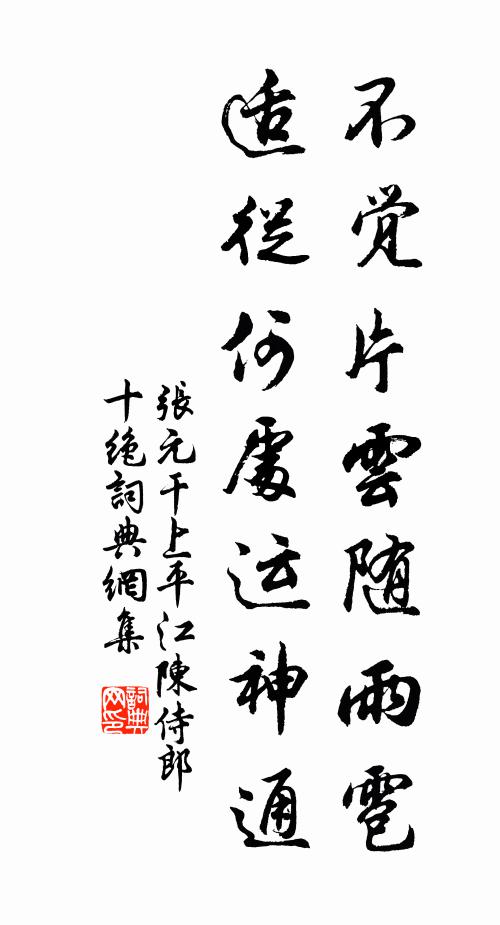 不觉片雲随雨雹
适從何處运神通
張元干上平江陳侍郎
十绝詞典網集
詞典网印